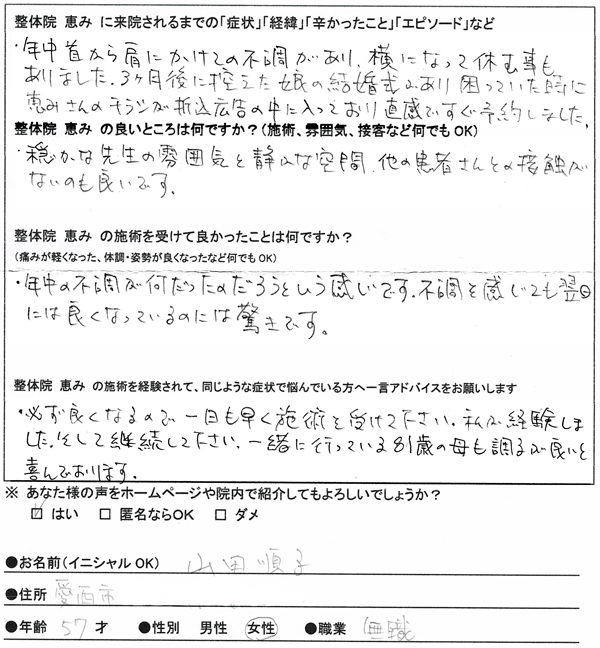 整体院 恵み に来院されるまでの「症状」「経緯」「辛かったこと」「エピソード」など
・年中首から肩にかけての不調があり、横になって休む事も
ありました。3ヶ月後に控えた娘の結婚式もあり困っていた時に
恵みさんのチラシが折込広告の中に入っており直感ですぐ予約しました。
整体院 恵み の良いところは何ですか？(施術、雰囲気、接客など何でもOK)
・穏かな先生の雰囲気と静かな空間、他の患者さんとの接触が
ないのも良いです。
整体院 恵み の施術を受けて良かったことは何ですか？
(痛みが軽くなった、体調・姿勢が良くなったなど何でもOK)
・年中の不調が何だったのだろうという感じです。不調を感じても翌日
には良くなっているのには驚きです。
整体院 恵み の施術を経験されて、同じような症状で悩んでいる方へ一言アドバイスをお願いします
・必ず良くなるので一日も早く施術を受けて下さい。私が経験しま
した。そして継続して下さい。一緒に行っている81歳の母も調子が良いと
喜んでおります。
※ あなた様の声をホームページや院内で紹介してもよろしいでしょうか？
☑ はい □ 匿名ならOK □ ダメ
●お名前(イニシャルOK) 山田順子
●住所 愛西市
●年齢 57 才 ●性別 男性 女性 ●職業 無職